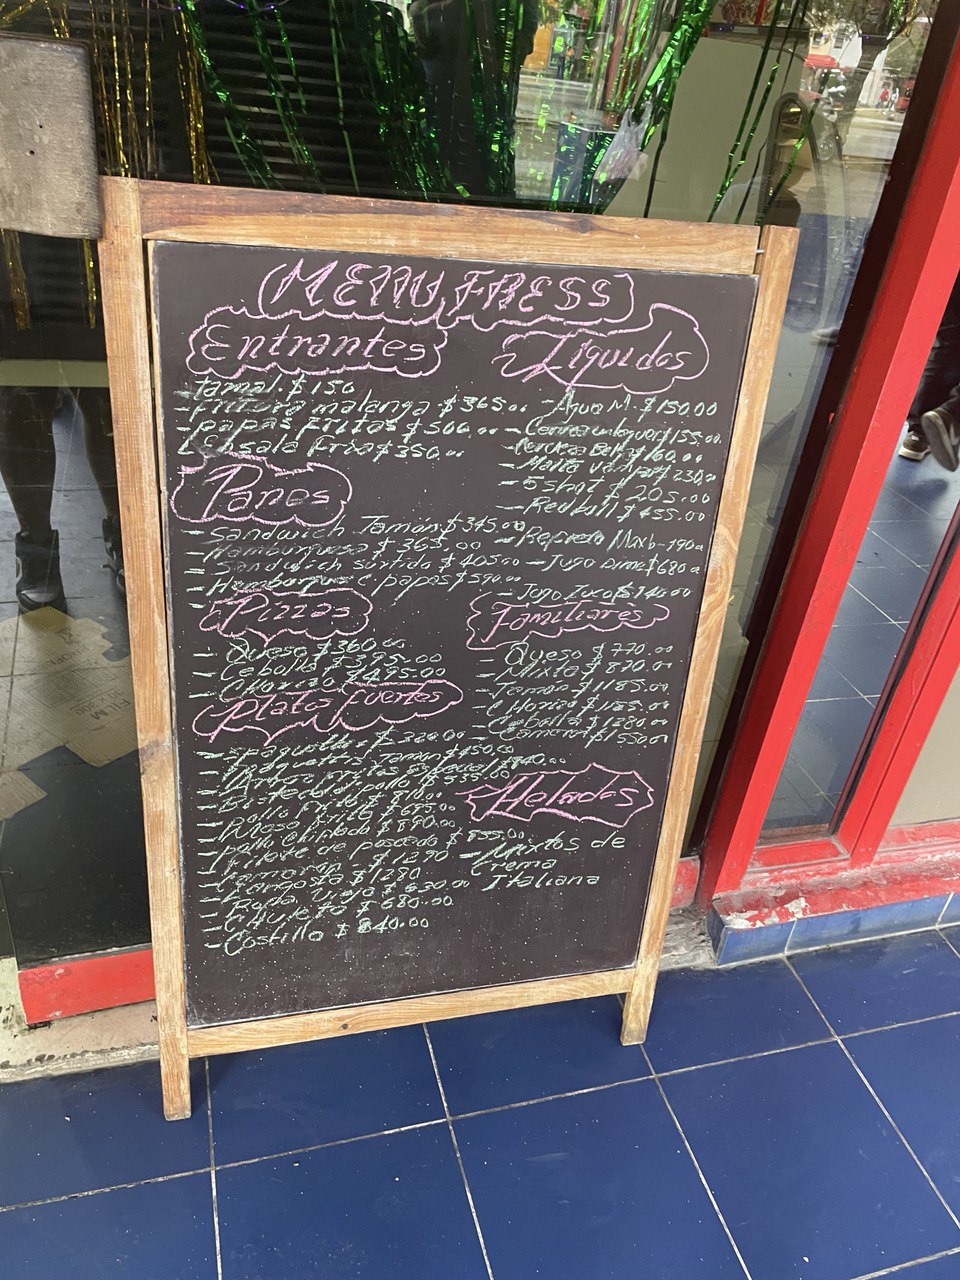 MENU FRESS
Entrantes
tamal. $150
- Fritura malanga $365.00
- papas Fritas $500.00
Elsala Fria $350.00
Panes
- Sandwich Jamón $345.00
- Hamburguesa $365,00
- Sandwich surtido $405.00
- Hamburgue c. papas $590.00
Pizzas
- Queso $360.00
- Cebolla $395.00
- Chorizo $495.00
Platos fuertes
- Spaguettis $320.00
- Spaguettis Jamon $450.00
- Arroz Frito Especial $840.00
- Bistec d pollo $535.00
- pollo Frito $
- $695.00
- pollo Chindado $890.00
- Filete de pescado $855.00
- Camarón - $1290
- Langosta $1280
- Ropa Vieja $630.00
- Chuleta $680.00
- Costilla $840.00
Liquidos
- Agua M. $150.00
- Cerveza $155.00
- Cerveza $160.00
- Malta $230.00
- 5 shot $205.00
- Redbull $435.00
- Refresco - 190
- Jugo $680
- Jugo $140.00
Familiares
- Queso $770.00
- Mixta $820.00
- Jamon $1185.00
- Chorizo $1185.00
- Cebolla $1280.00
- Camaron $1550.00
Helados
- Mixtos de
Crema
Italiana